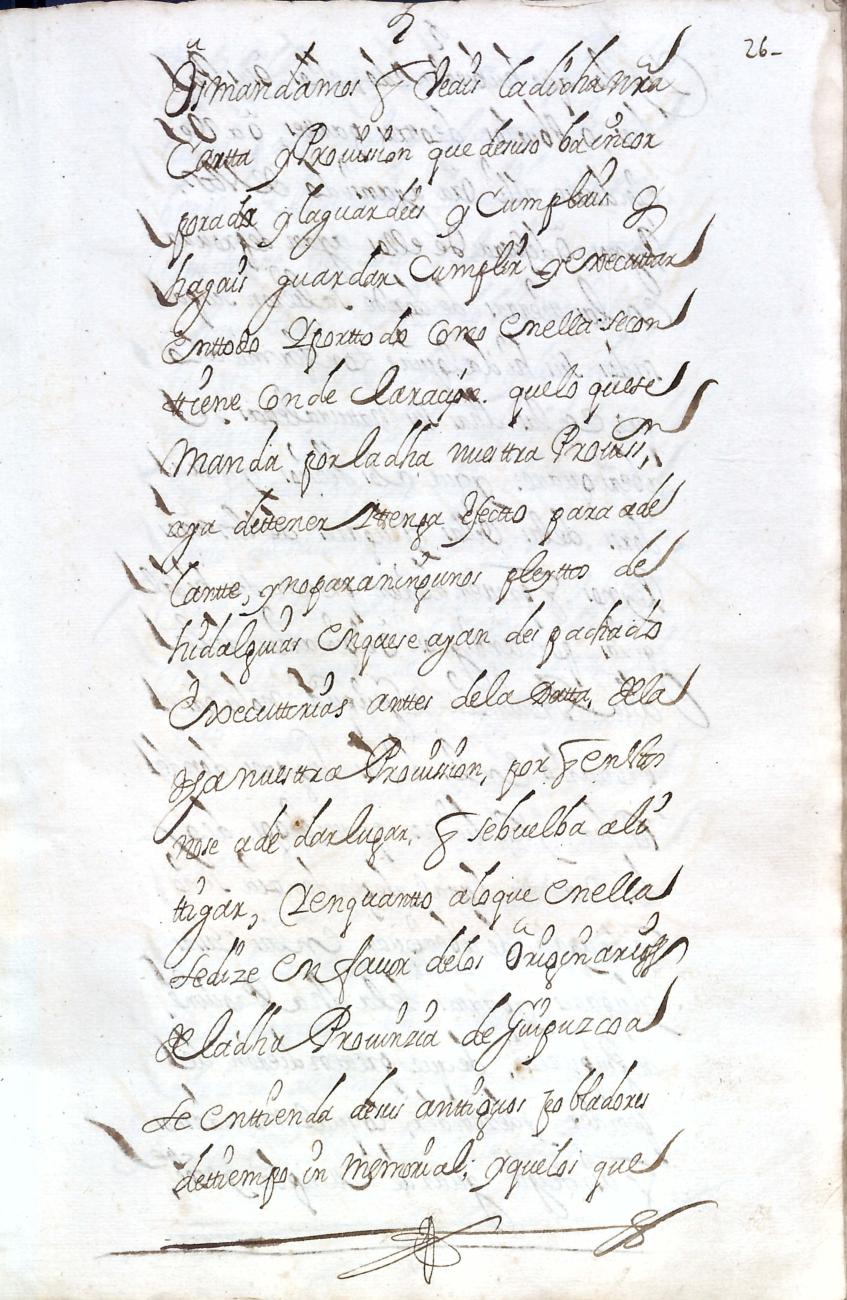 26-
Os mandamos q Veais ladicha nrā
Cartta y Prouission que desuso ba incor
porada y laguardeis y Cumplais y
hagais guardar Cumplir y executar
Enttodo y portto do como Enella secon
ttiene Con de claracion. quelo quese
Manda por ladha nuesttra Prouisⁿ,
aya dettener y ttenga efectto para ade
lantte, y no para ningunos pleyttos de
hidalguias En quese ayan des pachado
Executtorias anttes dela Datta, dela
dha nuesttra Prouission, por q en esttos
nose a de dar lugar, q sebuelba a li
tigar, y en quantto alo que Enella
se dize En fauor delos Originarios
de ladha Prouinzia de Guipuzcoa
se enttienda desus anttiguos pobladores
dettiempo in memorial; y quelos que